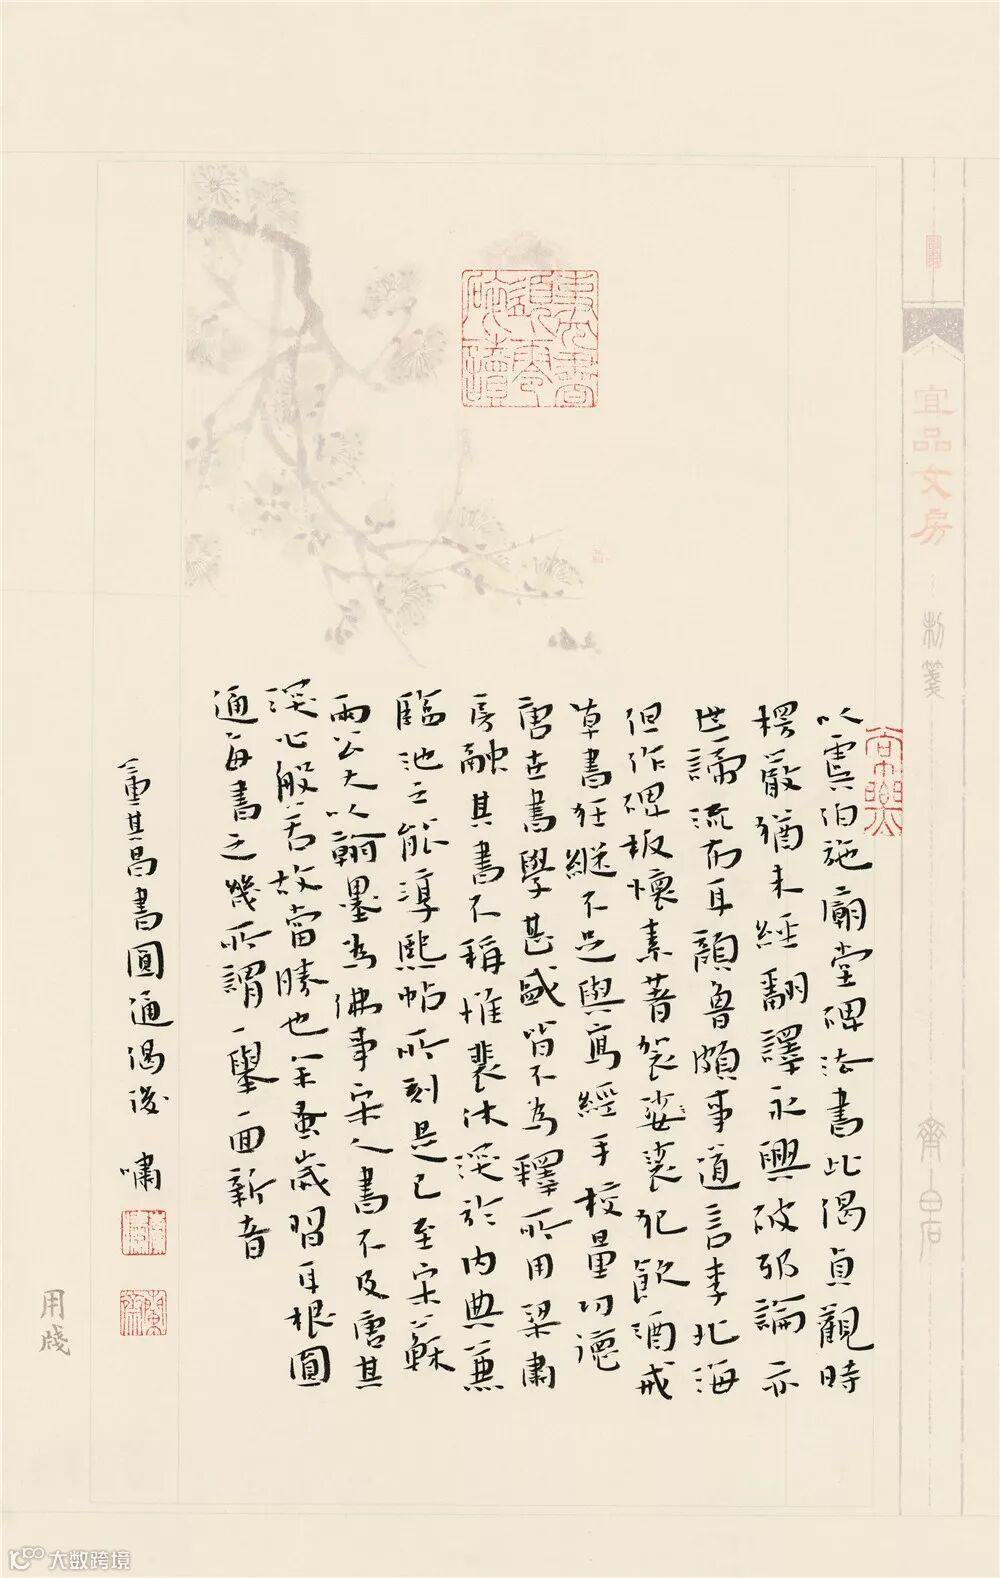 以虞伯施廟堂碑法書此偈貞觀時
楞嚴猶未經翻譯永興破邪論亦
世諦流布耳顏魯頗事道言李北海
但作碑板懷素著袈裟裟犯飲酒戒
草書狂縱不足與寫經手校量功德
唐世書學甚盛皆不為釋所用梁肅
房融其書不稱惟裴休深於內典兼
臨池之能淳熙帖所刻是已至宋蘇
兩公大以翰墨為佛事宋人書不及唐其
深心般若故當勝也余蚤歲習耳根圓
通每書之幾所謂一舉一面新音
董其昌書圓通偈後 嘯
宜品文房
制箋
齊白石
用牋
大数跨境